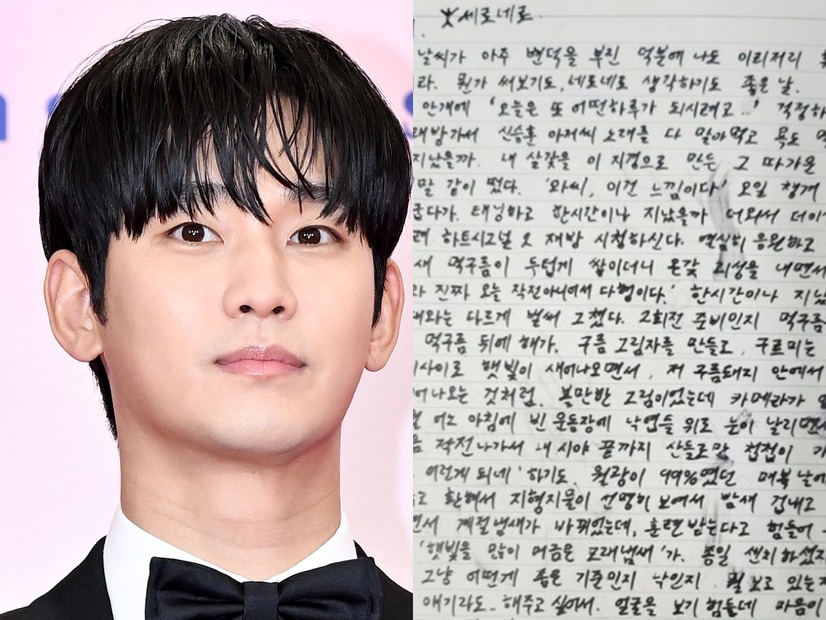 세로네로
날씨가 아주 변덕을 부린 덕분에 나도 이리저리
라. 뭔가 써보기도, 세로네로 생각하기도 좋은 날.
안개에 '오늘은 또 어떤하루가 되시려고...' 걱정하
래방가서 신승훈 아저씨 노래를 다 말아먹고 욕도 먹
지났을까. 내 살갗을 이 지경으로 만든 그 따가운
말 같이 떴다. '와씨, 이건 느낌이다' 오일 챙겨
군다가. 태닝하고 한시간이나 지났을까 더와서 데이
려 하트시그널 오 재방 시청하신다. 열심히 응원하고
새 먹구름이 두텁게 쌓이더니 온갖 괴성을 내면서
라 진짜 오늘 작전아니어서 다행이다.' 한시간이나 지났
대와는 다르게 벌써 그쳤다. 2회전 준비인지 먹구름
먹구름 뒤에 해가. 구름 그림자를 만들고, 구르미는
사이로 햇빛이 새어나오면서, 저 구름돼지 안에서
어나오는 것처럼. 볼만한 그림이었는데 카메라가
어느 아침에 빈 운동장에 낙엽들 위로 눈이 날리면서
작전나가서 내 시야 끝까지 산들로만 첩첩이
이런게 되네' 하기도. 월광이 99%였던 매복 날에
고 환해서 지형지물이 선명히 보여서 밤새 겁내고
면서 계절냄새가 바뀌었는데, 훈련받는다고 힘들어
'햇빛을 많이 머금은 모래냄새'가. 종일 센치하셨지
그냥 어떻게 좋은 기준인지 낙인지. 뭘 보고 있는지
얘기라도.. 해주고 싶어서. 얼굴을 보기 힘든데 마음이